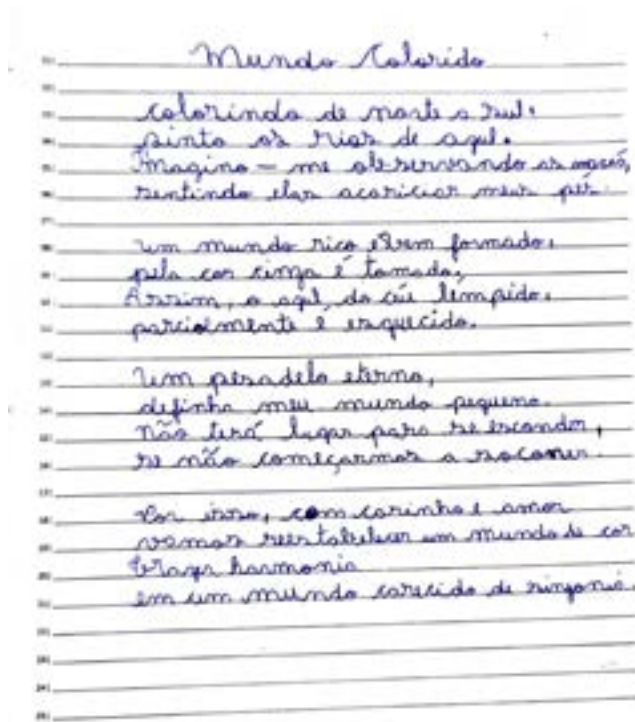 Mundo Colorido
Colorindo de norte a sul.
pinto os rios de azul.
Imagino-me observando as marés,
sentindo elas acariciar meus pés.
Um mundo rico e bem formado.
pela cor cinza é tomado.
Assim, o azul do céu límpido.
parcialmente é esquecido.
Um pesadelo eterno,
definha meu mundo pequeno.
Não terá lugar para se esconder,
se não começarmos a socorrer.
Por isso, com carinho e amor
vamos reestabelecer um mundo de cor
traga harmonia
em um mundo carecido de singonia.